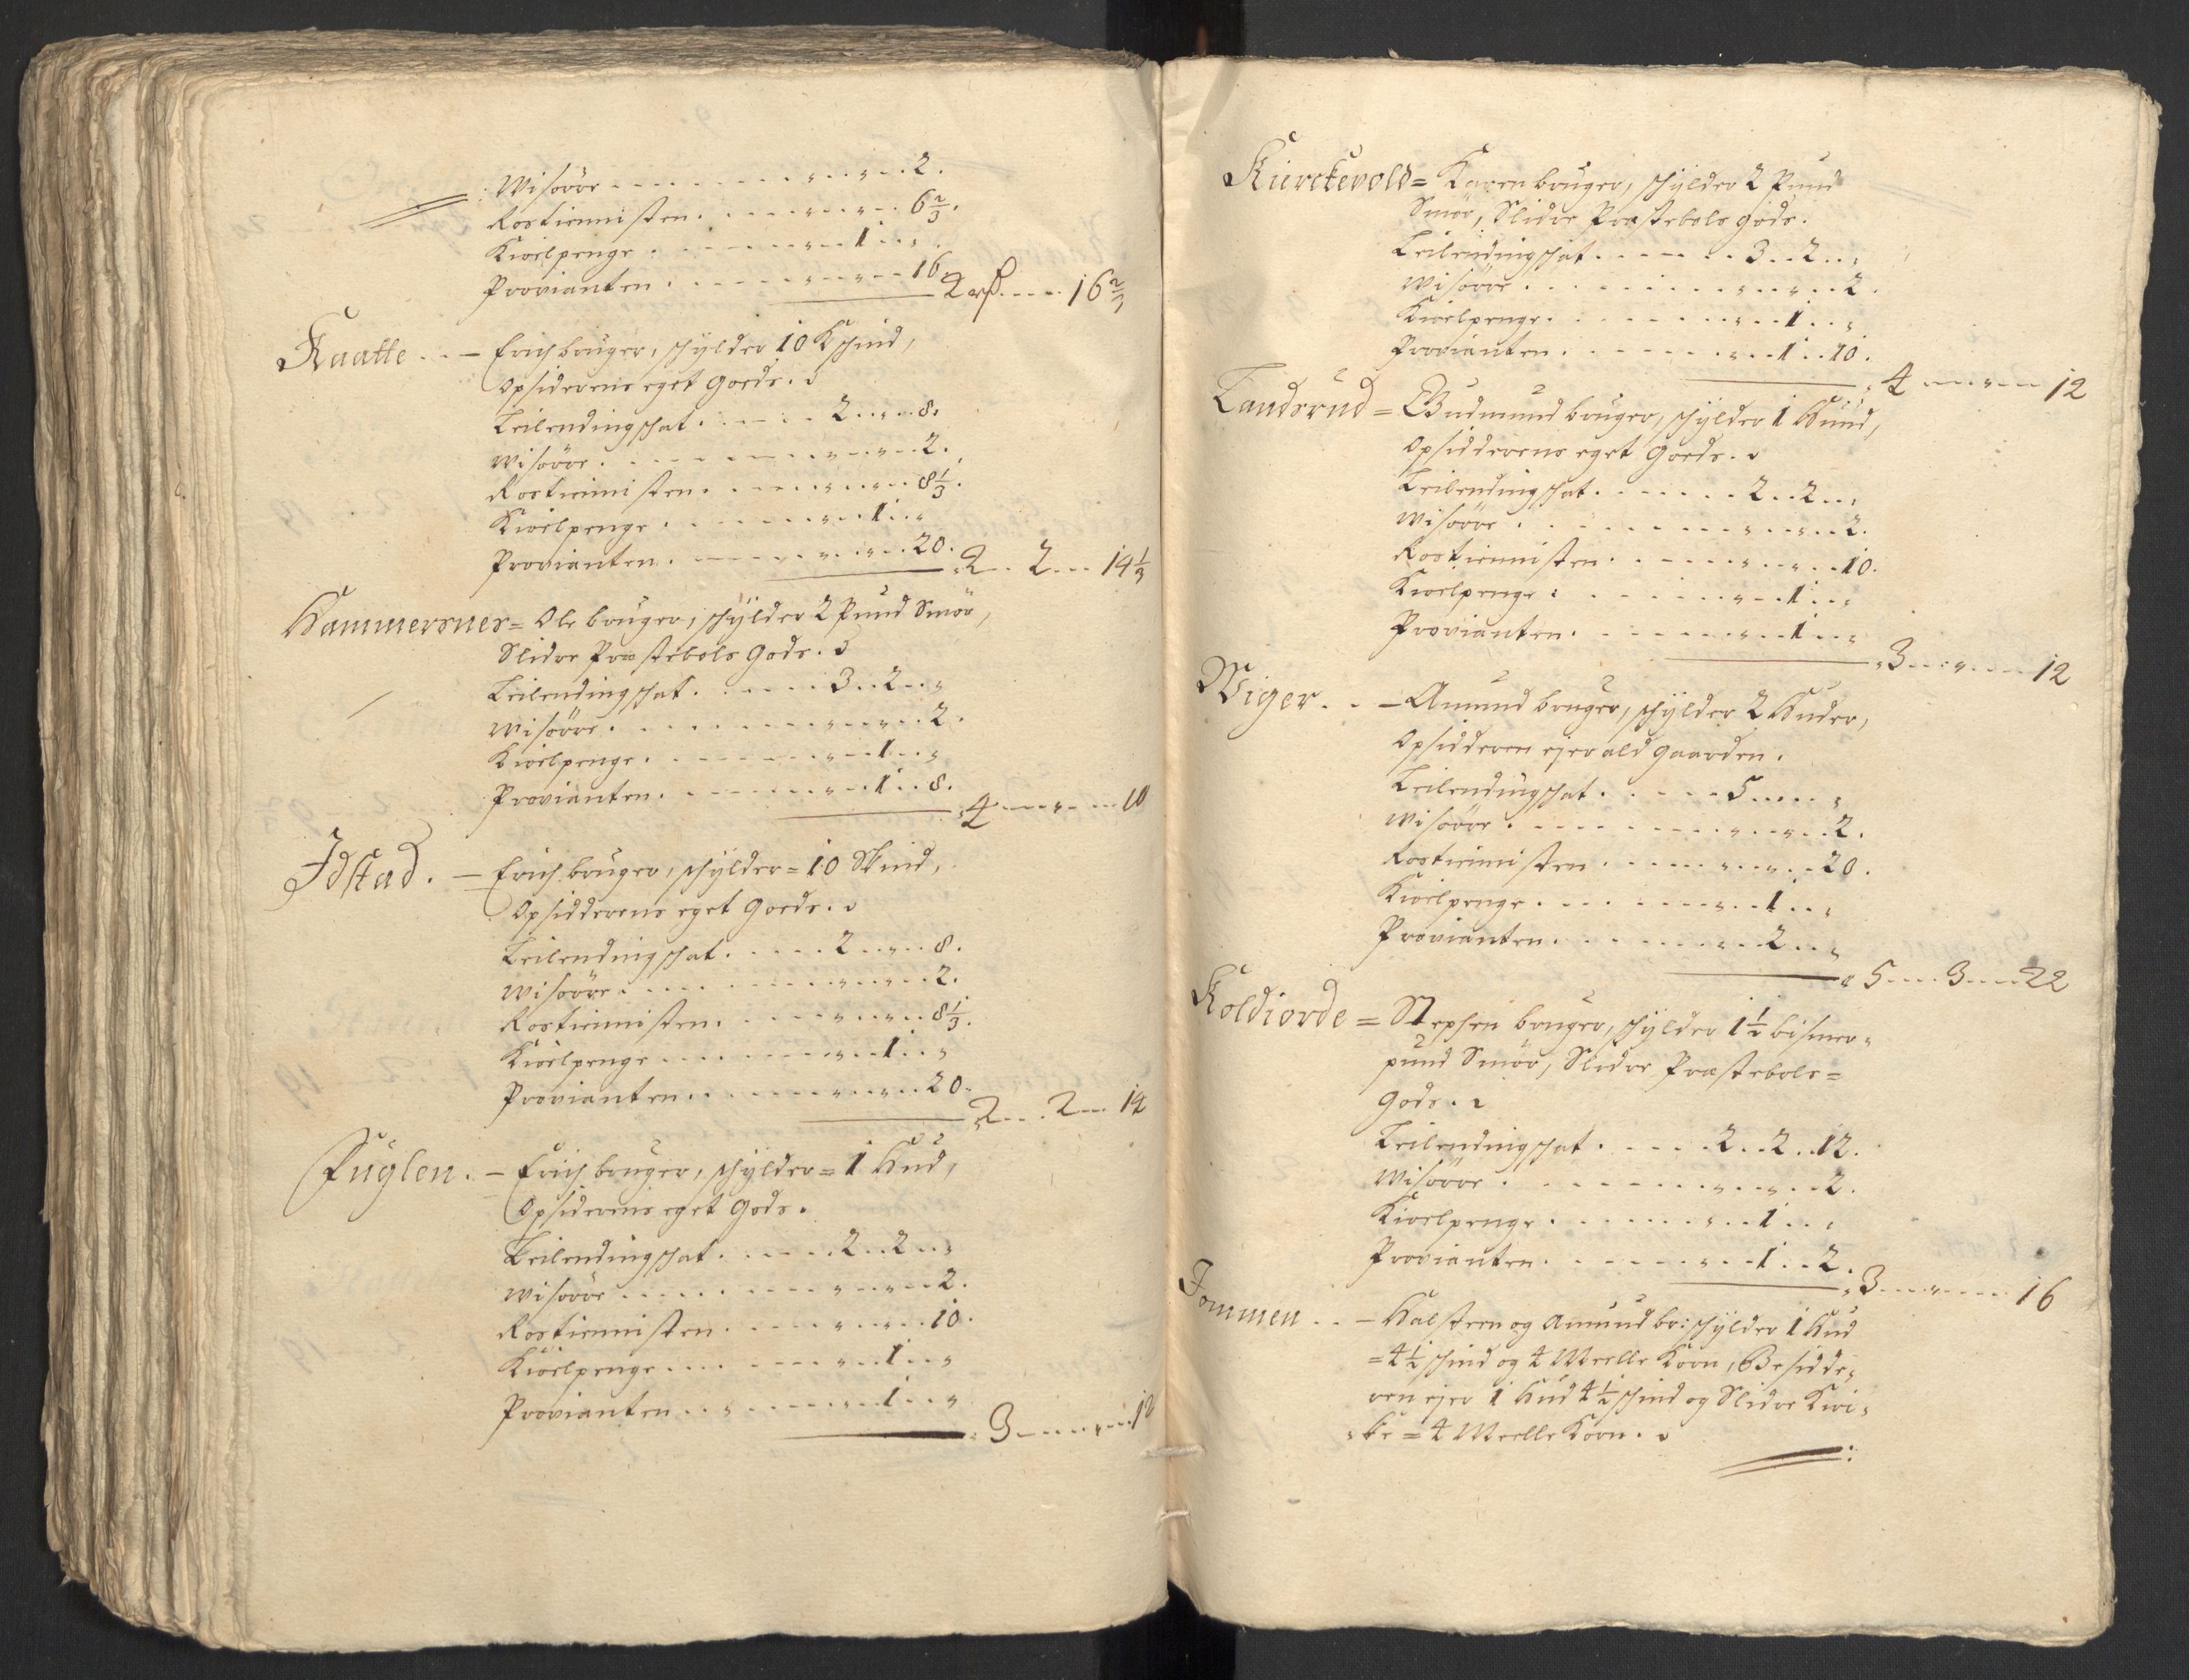 Wisøre - - - - „ - „ - 2.
Rostienisten. - - - - „ - „ - 6 2/3.
Kiøelpenge. - - - - „ - 1 - „
Provianten. - - - - „ - „ - 16
2 rß - - - 16 2/3
Kaatte - - Erich bruger, schylder 10 Kschind,
Opsiderens eget Goeds.
Leilendingschat. - - - 2 - „ - 8.
Wisøre. - - - - „ - „ - 2.
Rostienisten. - - - - „ - „ - 8 1/3.
Kiøelpenge. - - - - „ - 1 - „
Provianten. - - - - „ - „ - 20.
2 - 2 - - 14 1/3
Hammersnes = Ole bruger, schylder 2 Pund Smør,
Slidre Præstebols Gods.
Leilendingschat. - - - 3 - 2 - „
Wisøre. - - - - „ - „ - 2.
Kiøelpenge. - - - - „ - 1 - „
Provianten. - - - - „ - 1 - 8.
4 - - „ - - 10
Idstad. - Erich bruger, schylder = 10 Skind,
Opsidderens eget Goeds.
Leilendingschat. - - - 2 - „ - 8.
Wisøre. - - - - „ - „ - 2.
Rostienisten. - - - - „ - „ - 8 1/3.
Kiøelpenge - - - - „ - 1 - „
Provianten. - - - - „ - „ - 20.
2 - - 2 - - 14
Fuglen. - Erich bruger, schylder = 1 Hud,
Opsiderens eget Gods.
Leilendingschat. - - - 2 - 2 - „
Wisøre - - - - „ - „ - 2.
Rostienisten. - - - - „ - „ - 10.
Kiøelpenge - - - - „ - 1 - „
Provianten - - - - „ - 1 - „
3 - - „ - - 12
Kierckevold = Karen bruger, schylder 2 Pund
Smør, Slidre Præstebols Gods.
Leilendingschat. - - - 3 - 2 - „
Wisøre. - - - - „ - „ - 2.
Kiøelpenge. - - - - „ - 1 - „
Provianten. - - - - „ - 1 - 10.
4 - - „ - - 12
Landsrud = Gudmund bruger, schylder 1 Huud,
Opsidderens eget Goeds.
Leilendingschat. - - - 2 - 2 - „
Wisøre. - - - - „ - „ - 2.
Rostienisten. - - - - „ - „ - 10.
Kiøelpenge. - - - - „ - 1 - „
Provianten. - - - - „ - 1 - „
3 - - „ - - 12
Wiger. - - Amund bruger, schylder 2 Huder,
Opsidderen ejer ald Gaarden.
Leilendingschat. - - - 5 - - „
Wisøre. - - - - „ - „ - 2.
Rostienisten. - - - - „ - „ - 20.
Kiøelpenge. - - - - „ - 1 - „
Provianten. - - - - „ - 2 - „
5 - - 3 - - 22
Koldiorde = Stephen bruger, schylder 1 1/2 bismer-
pund Smør, Slidre Præstebols =
Gods.
Leilendingschat. - - - 2 - 2 - 12.
Wisøre. - - - - „ - „ - 2.
Kiøelpenge. - - - - „ - 1 - „
Provianten. - - - - „ - 1 - 2.
3 - - „ - - 16
Jommen - - Halsteen og Amund br: schylder 1 Hud
= 4 1/2 schind og 4 Meelle Korn, Besidde-
ren ejer 1 Hud 4 1/2 schind og Slidre Kir-
- ke = 4 Meelle Korn.